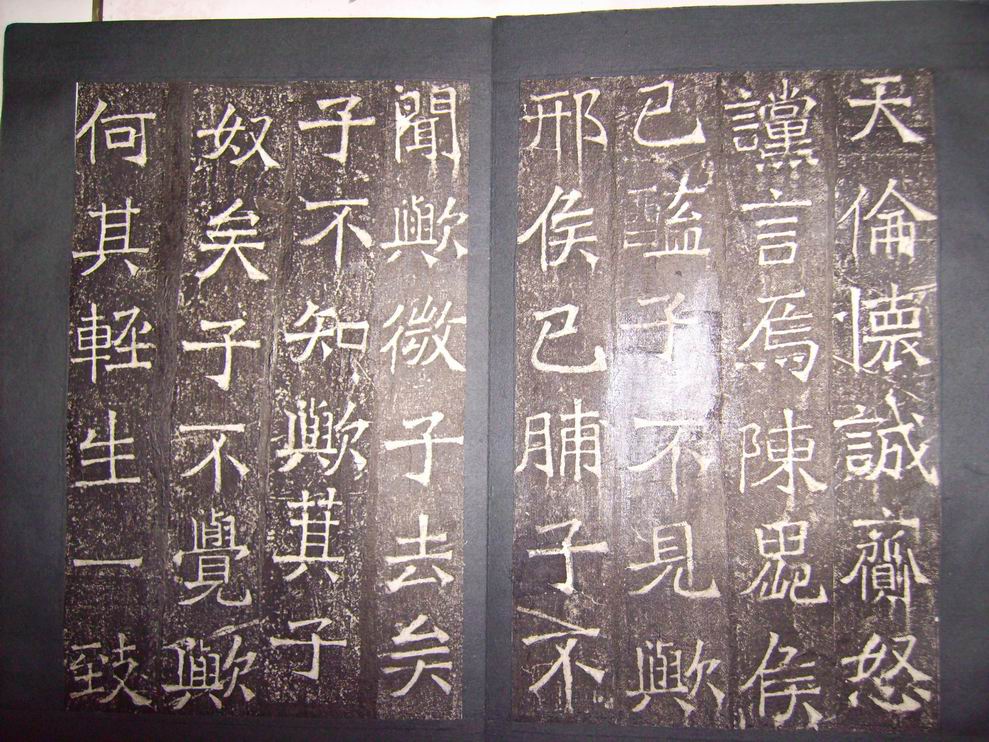 天倫懷誠齎怒
讜言焉陳鬼侯
已醢子不見歟
邢侯已脯子不
聞歟微子去矣
子不知歟萁子
奴矣子不覺歟
何其輕生一致